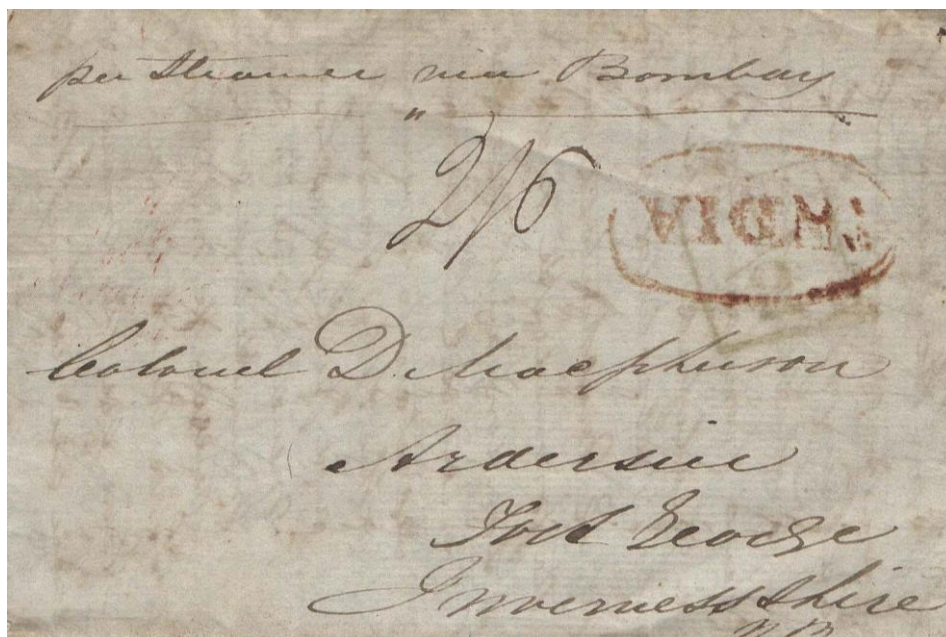 per Steamer via Bombay
2/6
INDIA
Colonel D. Macpherson
Ardersier
Fort George
Invernessshire
N.B.